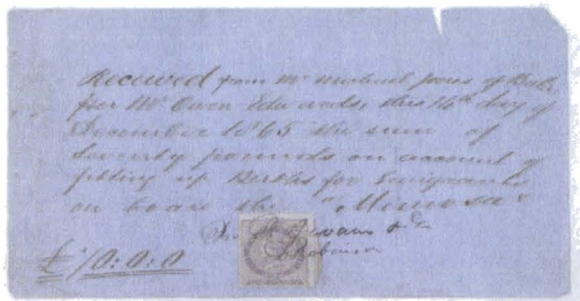 Received from Mr Michael Jones of Bala
per Mr Owen Edwards, this 14th day of
December 1865 the sum of
Seventy pounds on account of
fitting up Berths for Emigrants
on board the "Mimosa"
Evans & Co
Robinson
£70:0:0